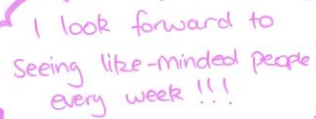 I look forward to
seeing like-minded people
every week !!!